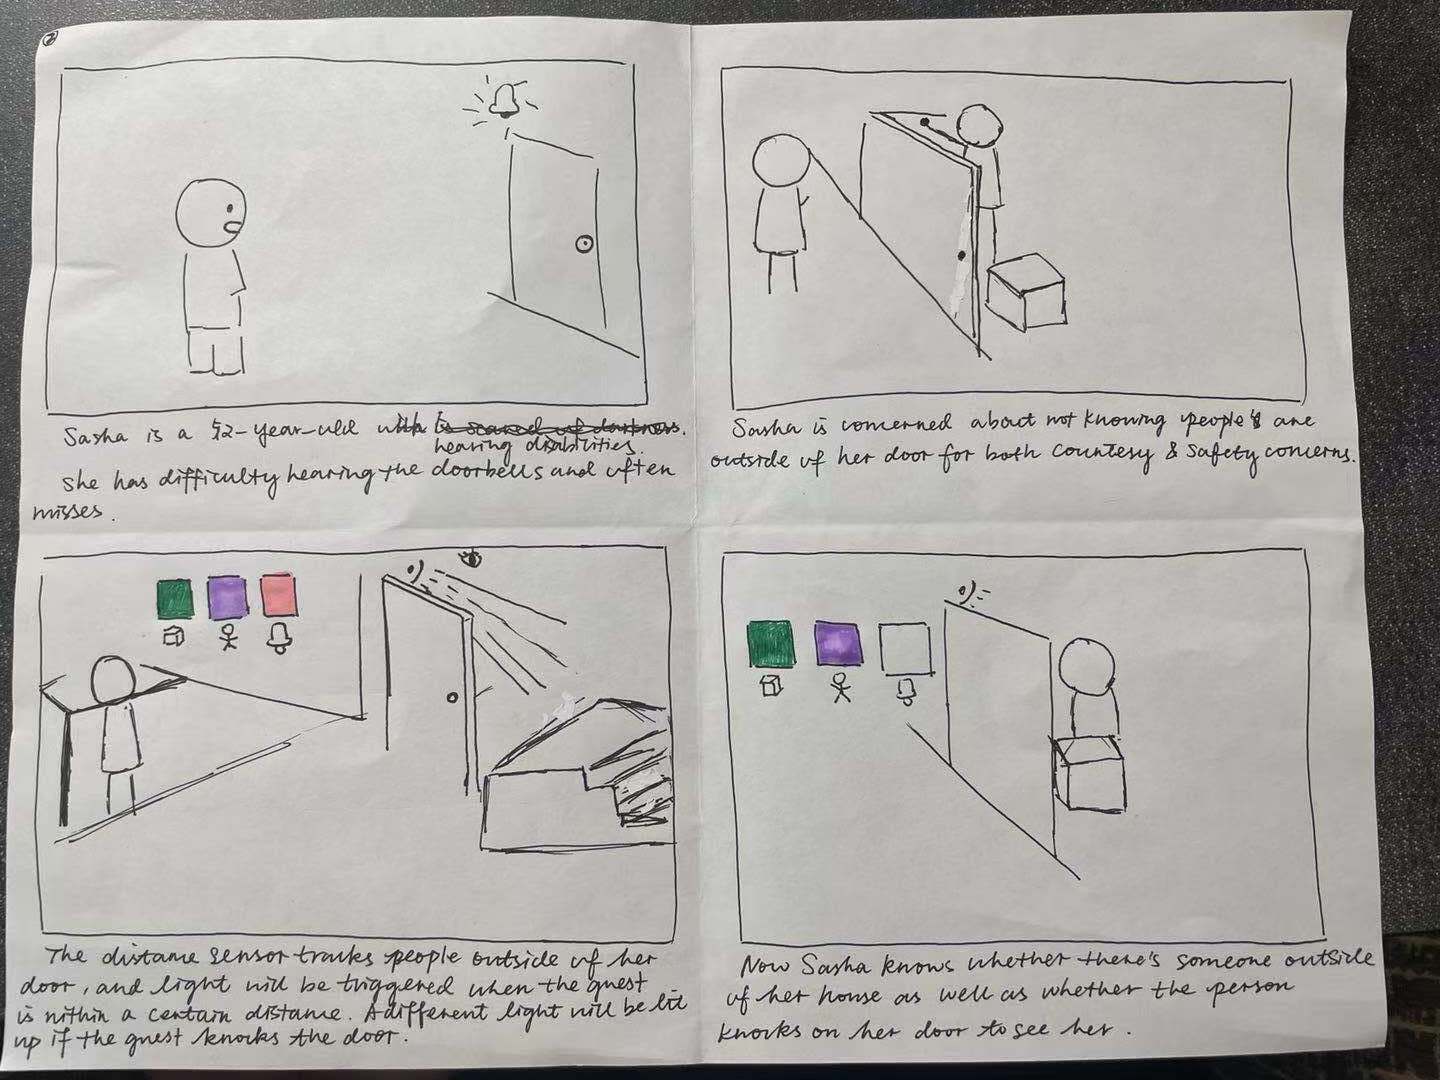 2
Sasha is a 52-year-old with is scared of darkness.
hearing disabilities.
She has difficulty hearing the doorbells and often
misses.
Sasha is concerned about not knowing people's are
outside of her door for both courtesy & safety concerns.
The distance sensor tracks people outside of her
door, and light will be triggered when the guest
is within a certain distance. A different light will be lit
up if the guest knocks the door.
Now Sasha knows whether there's someone outside
of her house as well as whether the person
knocks on her door to see her.